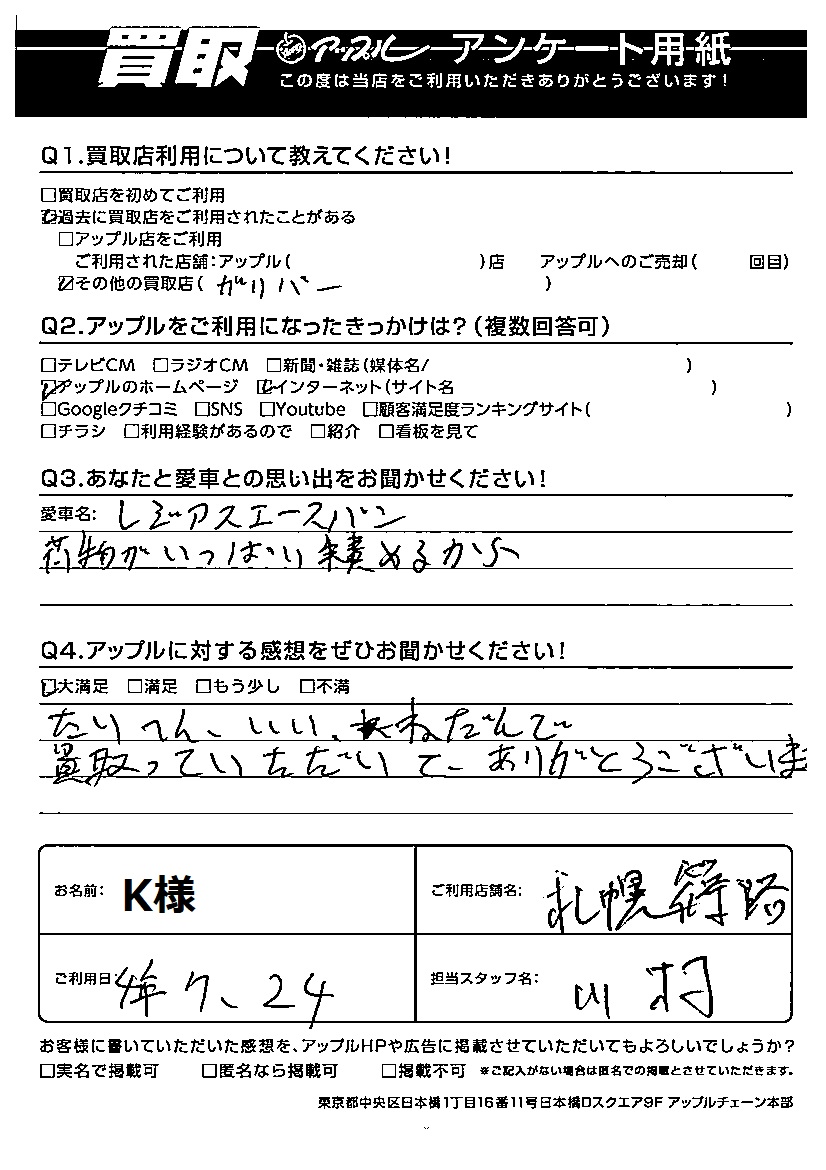 買取 アップル アンケート用紙
この度は当店をご利用いただきありがとうございます!
Q1.買取店利用について教えてください!
□買取店を初めてご利用
☑過去に買取店をご利用されたことがある
□アップル店をご利用
ご利用された店舗:アップル( )店 アップルへのご売却( 回目)
☑その他の買取店( ガリバー )
Q2.アップルをご利用になったきっかけは?(複数回答可)
□テレビCM □ラジオCM □新聞・雑誌(媒体名/ )
☑アップルのホームページ ☑インターネット(サイト名 )
□Googleクチコミ □SNS □Youtube □顧客満足度ランキングサイト( )
□チラシ □利用経験があるので □紹介 □看板を見て
Q3.あなたと愛車との思い出をお聞かせください!
愛車名: レジアスエースバン
荷物がいっぱい積めるから
Q4.アップルに対する感想をぜひお聞かせください!
☑大満足 □満足 □もう少し □不満
たいへん、いい、ねだんで
買取っていただいて、ありがとうございま
お名前: K様
ご利用店舗名: 札幌篠路
ご利用日: 年7、24
担当スタッフ名: 川村
お客様に書いていただいた感想を、アップルHPや広告に掲載させていただいてもよろしいでしょうか?
□実名で掲載可 □匿名なら掲載可 □掲載不可 ※ご記入がない場合は匿名での掲載とさせていただきます。
東京都中央区日本橋1丁目16番11号日本橋Dスクエア9F アップルチェーン本部